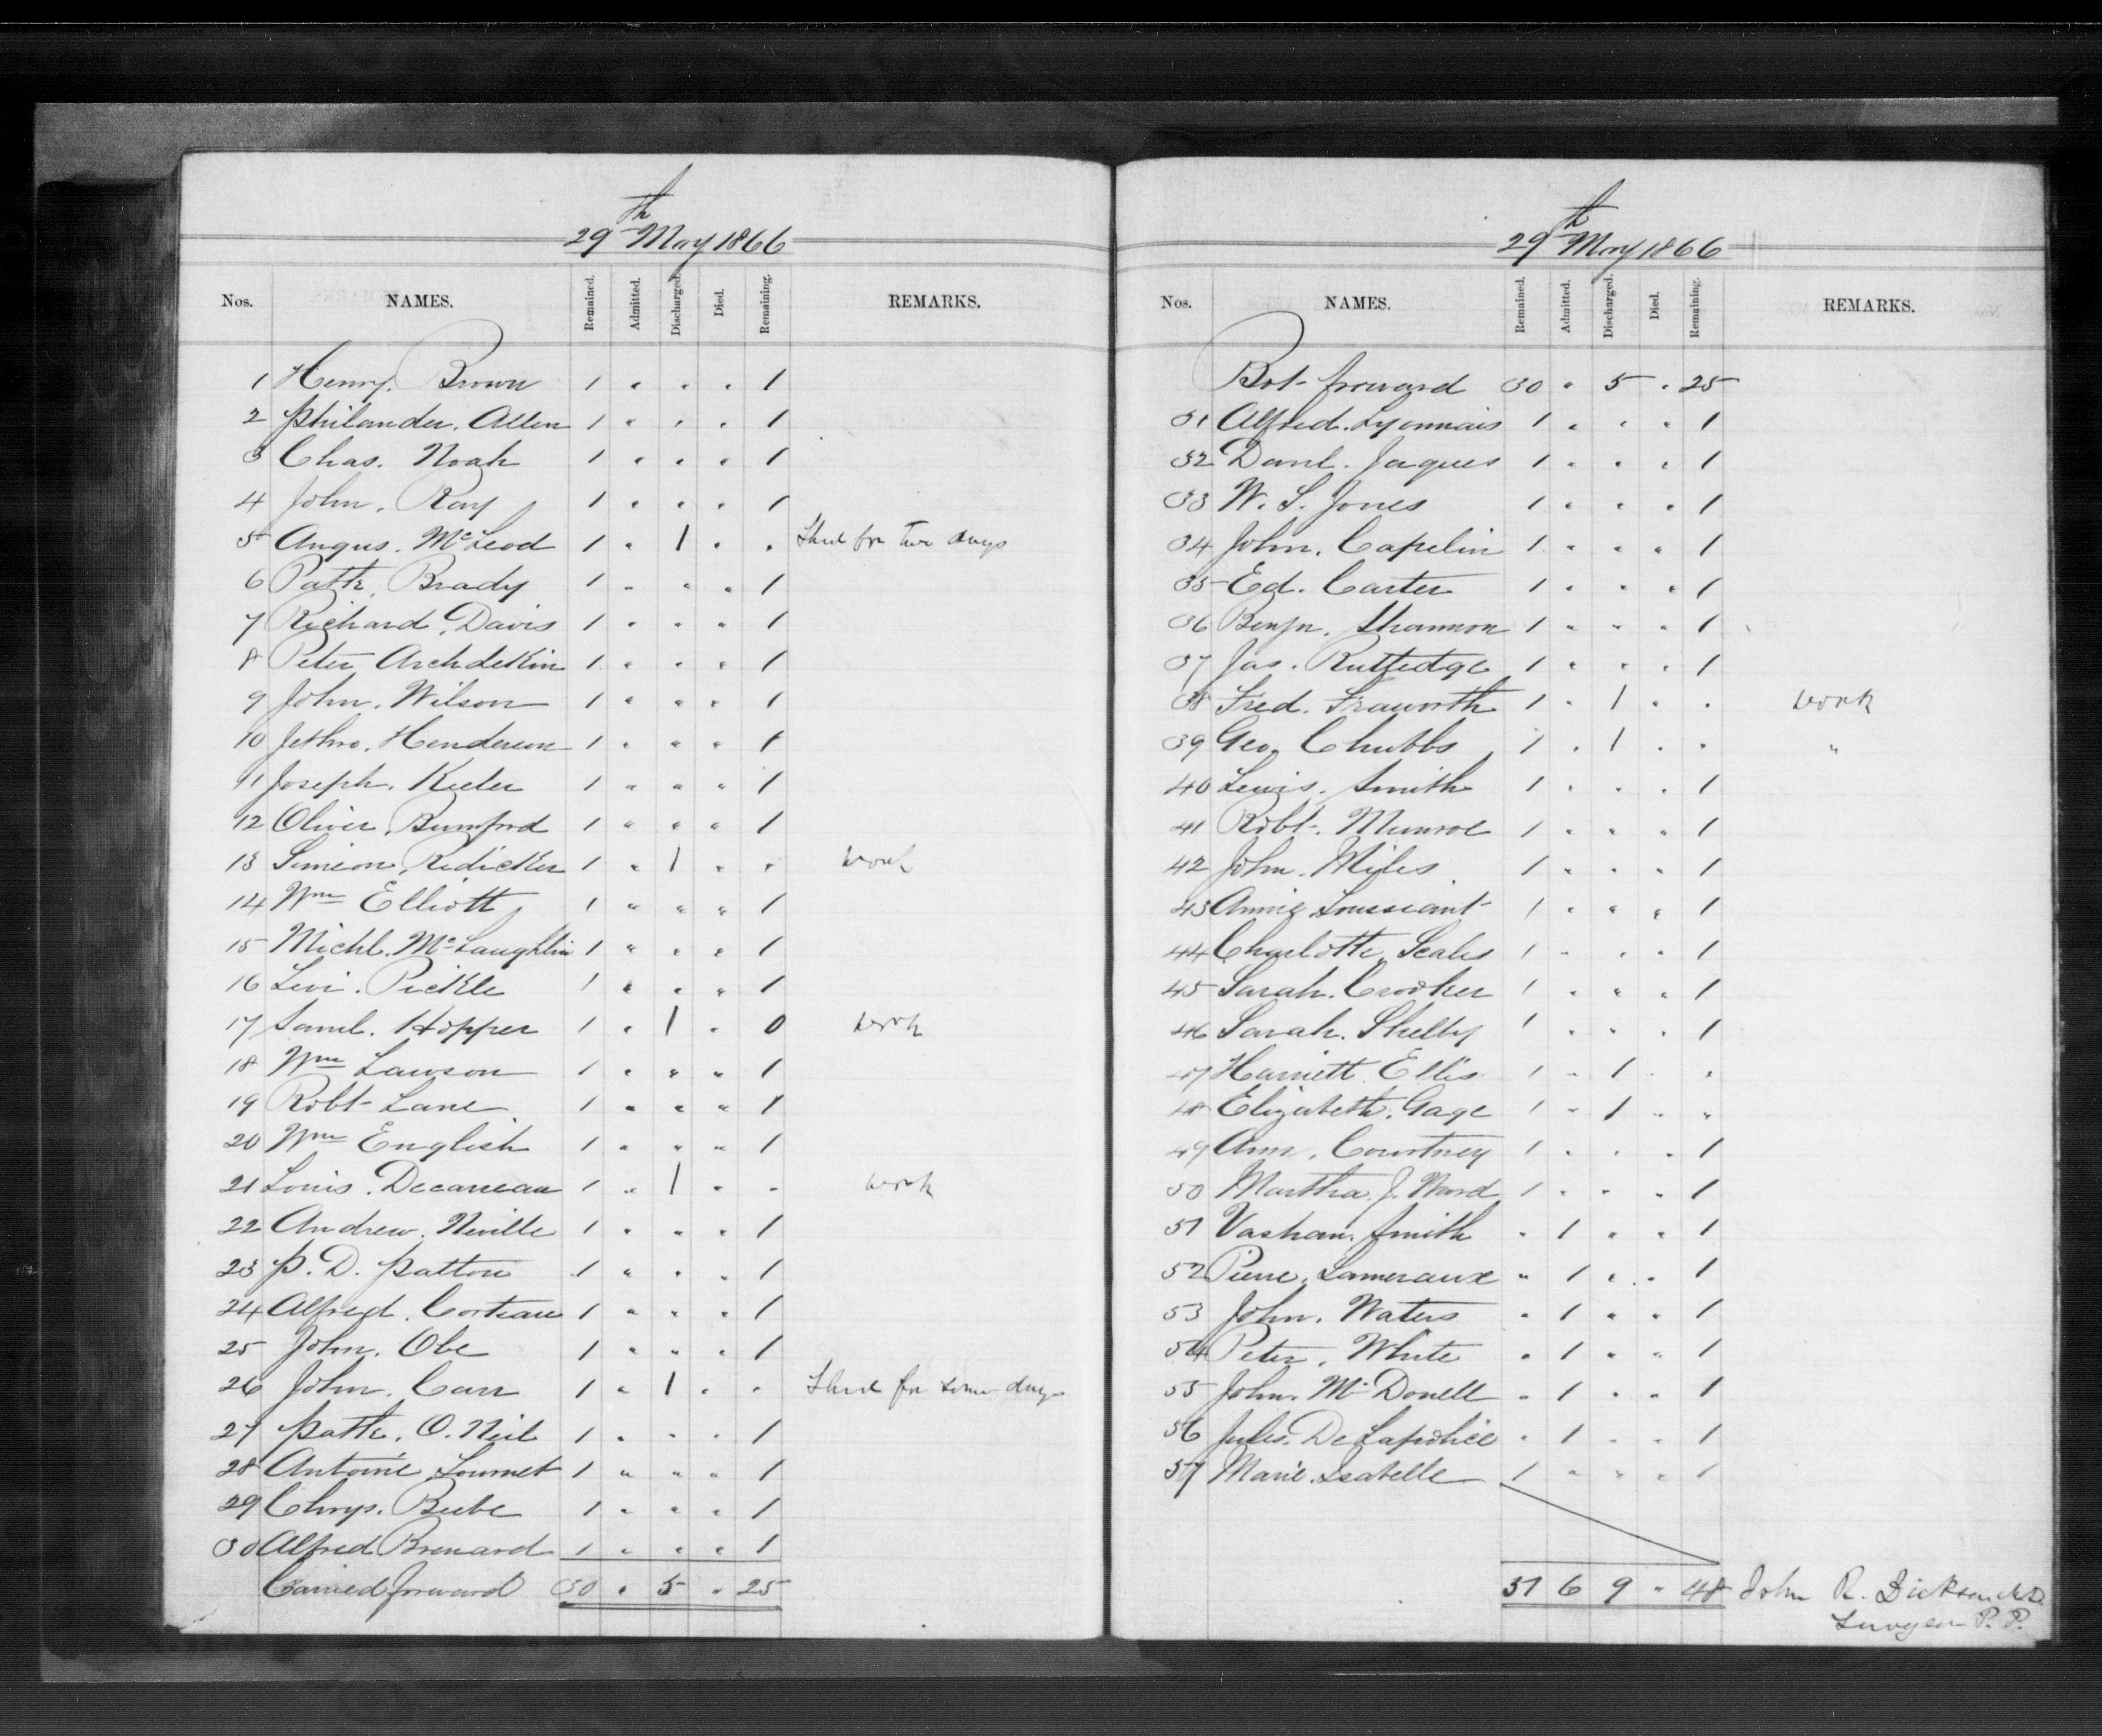 29th May 1866
Nos. NAMES. Remained. Admitted. Discharged. Died. Remaining. REMARKS.
1 Henry. Brown 1 " " " 1
2 Philander. Allen 1 " " " 1
3 Chas. Noah 1 " " " 1
4 John. Ray 1 " " " 1
5 Angus. McLeod 1 " 1 " " Shed for two days
6 Patk. Brady 1 " " " 1
7 Richard. Davis 1 " " " 1
8 Peter Archdekin 1 " " " 1
9 John. Wilson 1 " " " 1
10 Jethro. Henderson 1 " " " 1
11 Joseph. Kieler 1 " " " 1
12 Oliver. Bumford 1 " " " 1
13 Simeon. Redicker 1 " 1 " " work
14 Wm Elliott 1 " " " 1
15 Michl. McLaughlin 1 " " " 1
16 Levi. Pickle 1 " " " 1
17 Saml. Hopper 1 " 1 " 0 work
18 Wm Lawson 1 " " " 1
19 Robt Lane 1 " " " 1
20 Wm English 1 " " " 1
21 Louis. Decareau 1 " 1 " " work
22 Andrew. Neville 1 " " " 1
23 P. D. Patton 1 " " " 1
24 Alfred. Corteau 1 " " " 1
25 John. Obe 1 " " " 1
26 John. Carr 1 " 1 " " Shed for some days
27 Patk. O. Neil 1 " " " 1
28 Antoine 1 " " " 1
29 Chrys. Beebe 1 " " " 1
30 Alfred Brenard 1 " " " 1
Carried forward 30 " 5 " 25
29th May 1866
Nos. NAMES. Remained. Admitted. Discharged. Died. Remaining. REMARKS.
Bot- forward 30 " 5 " 25
31 Alfred. Lyonnais 1 " " " 1
32 Danl. Jaques 1 " " " 1
33 W. S. Jones 1 " " " 1
34 John. Capelin 1 " " " 1
35 Ed. Carter 1 " " " 1
36 Benjn. Shannon 1 " " " 1
37 Jas. Rutledge 1 " " " 1
38 Fred. Fraworth 1 " 1 " " work
39 Geo. Chubbs 1 " 1 " " "
40 Lewis. Smith 1 " " " 1
41 Robt. Munroe 1 " " " 1
42 John. Miles 1 " " " 1
43 Annie Toussiant 1 " " " 1
44 Charlotte. Scales 1 " " " 1
45 Sarah. Crooker 1 " " " 1
46 Sarah. Shelby 1 " " " 1
47 Harriett. Ellis 1 " 1 " "
48 Elizabeth. Gage 1 " 1 " "
49 Ann. Courtney 1 " " " 1
50 Martha. J. Ward 1 " " " 1
51 Vashan. Smith " 1 " " 1
52 Pierre. Lameraux " 1 " " 1
53 John. Waters " 1 " " 1
54 Peter. White " 1 " " 1
55 John. McDonell " 1 " " 1
56 Jules. De Lapolice " 1 " " 1
57 Marie. Isabelle 1 " " " 1
51 6 9 " 48 John R. Dickson M.D.
Surgeon P. P.